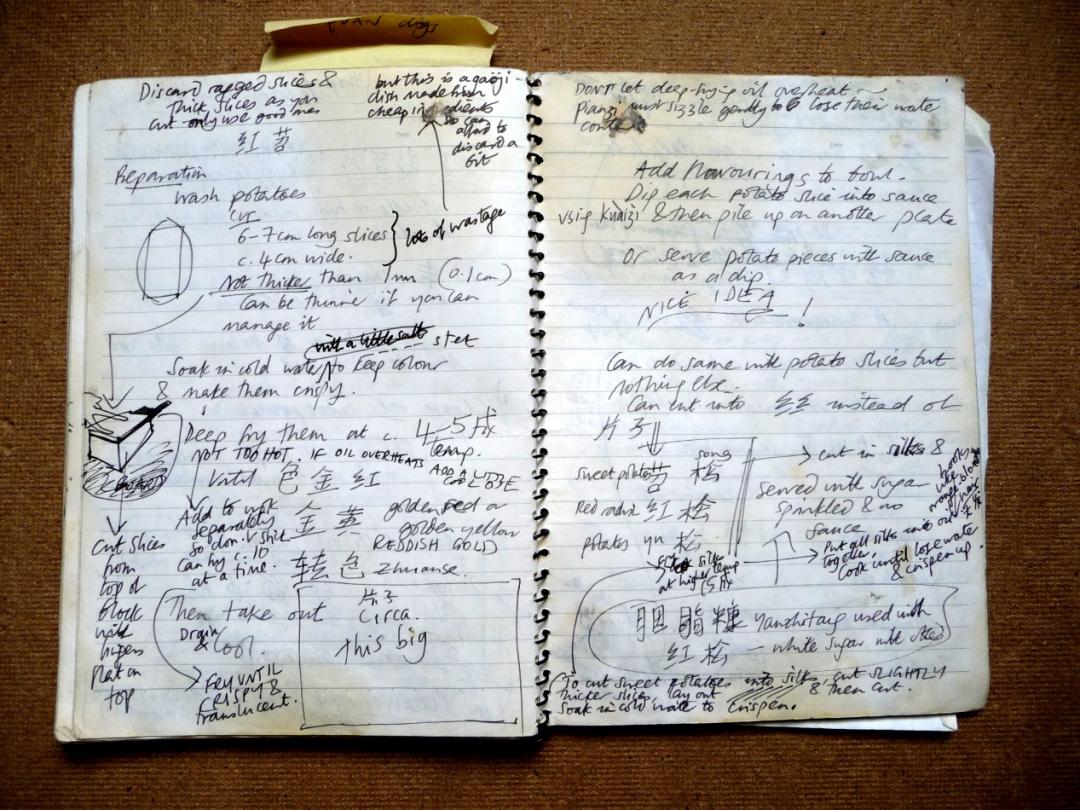 Discard ragged slices &
thick slices as you
cut - only use good ones
but this is a gaoji
dish made from
cheap ingredients
so can
afford to
discard a
bit
红苕
Preparation
Wash potatoes
cut
6-7cm long slices
c. 4cm wide.
lots of wastage
Not thicker than 1mm (0.1cm)
Can be thinner if you can
manage it
with a little salt stet
Soak in cold water to keep colour
& make them crispy.
Deep fry them at c. 4-5成
temp.
NOT TOO HOT. IF OIL OVERHEATS
ADD A LITTLE
COOL
Until 色金红
golden red or
金黄 golden yellow
REDDISH GOLD
转色 zhuanse.
Add to wok
separately
so don't stick
Can fry c. 10
at a time.
BOARD
Cut slices
from
top of
block
with
flat on
top
Then take out
Drain
& cool.
FRY UNTIL
CRISPY &
translucent.
片子
Circa
this big
DON'T let deep-frying oil overheat ~
pianzi must sizzle gently to lose their water
content
Add flavourings to bowl.
Dip each potato slice into sauce
using kuaizi & then pile up on another plate
Or serve potato pieces with sauce
as a dip
NICE IDEA!
Can do same with potato slices but
nothing else.
Can cut into 丝 instead of
片子
song
sweet potato 苕松
Red radish 红松
potatoes yu 松
cut in silks &
served with sugar
sprinkled & no
sauce
Put all silks into oil
together,
Cook until lose water
& crispen up.
Fry silk
at higher temp
(5成
胭脂糖 yanzhitang used with
红松 - white sugar with others
To cut sweet potatoes into silk, cut SLIGHTLY
thicker slices, lay out & then cut.
Soak in cold water to crispen.